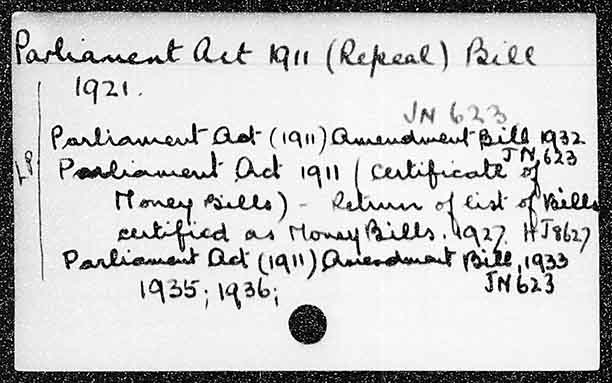 Parliament Act 1911 (Repeal) Bill
1921.
JN 623
Parliament Act (1911) Amendment Bill 1932
JN 623
LP
Parliament Act 1911 (certificate of
Money Bills) - Return of list of Bills
certified as Money Bills. 1927. HJ8627
Parliament Act (1911) Amendment Bill, 1933
1935; 1936; JN623